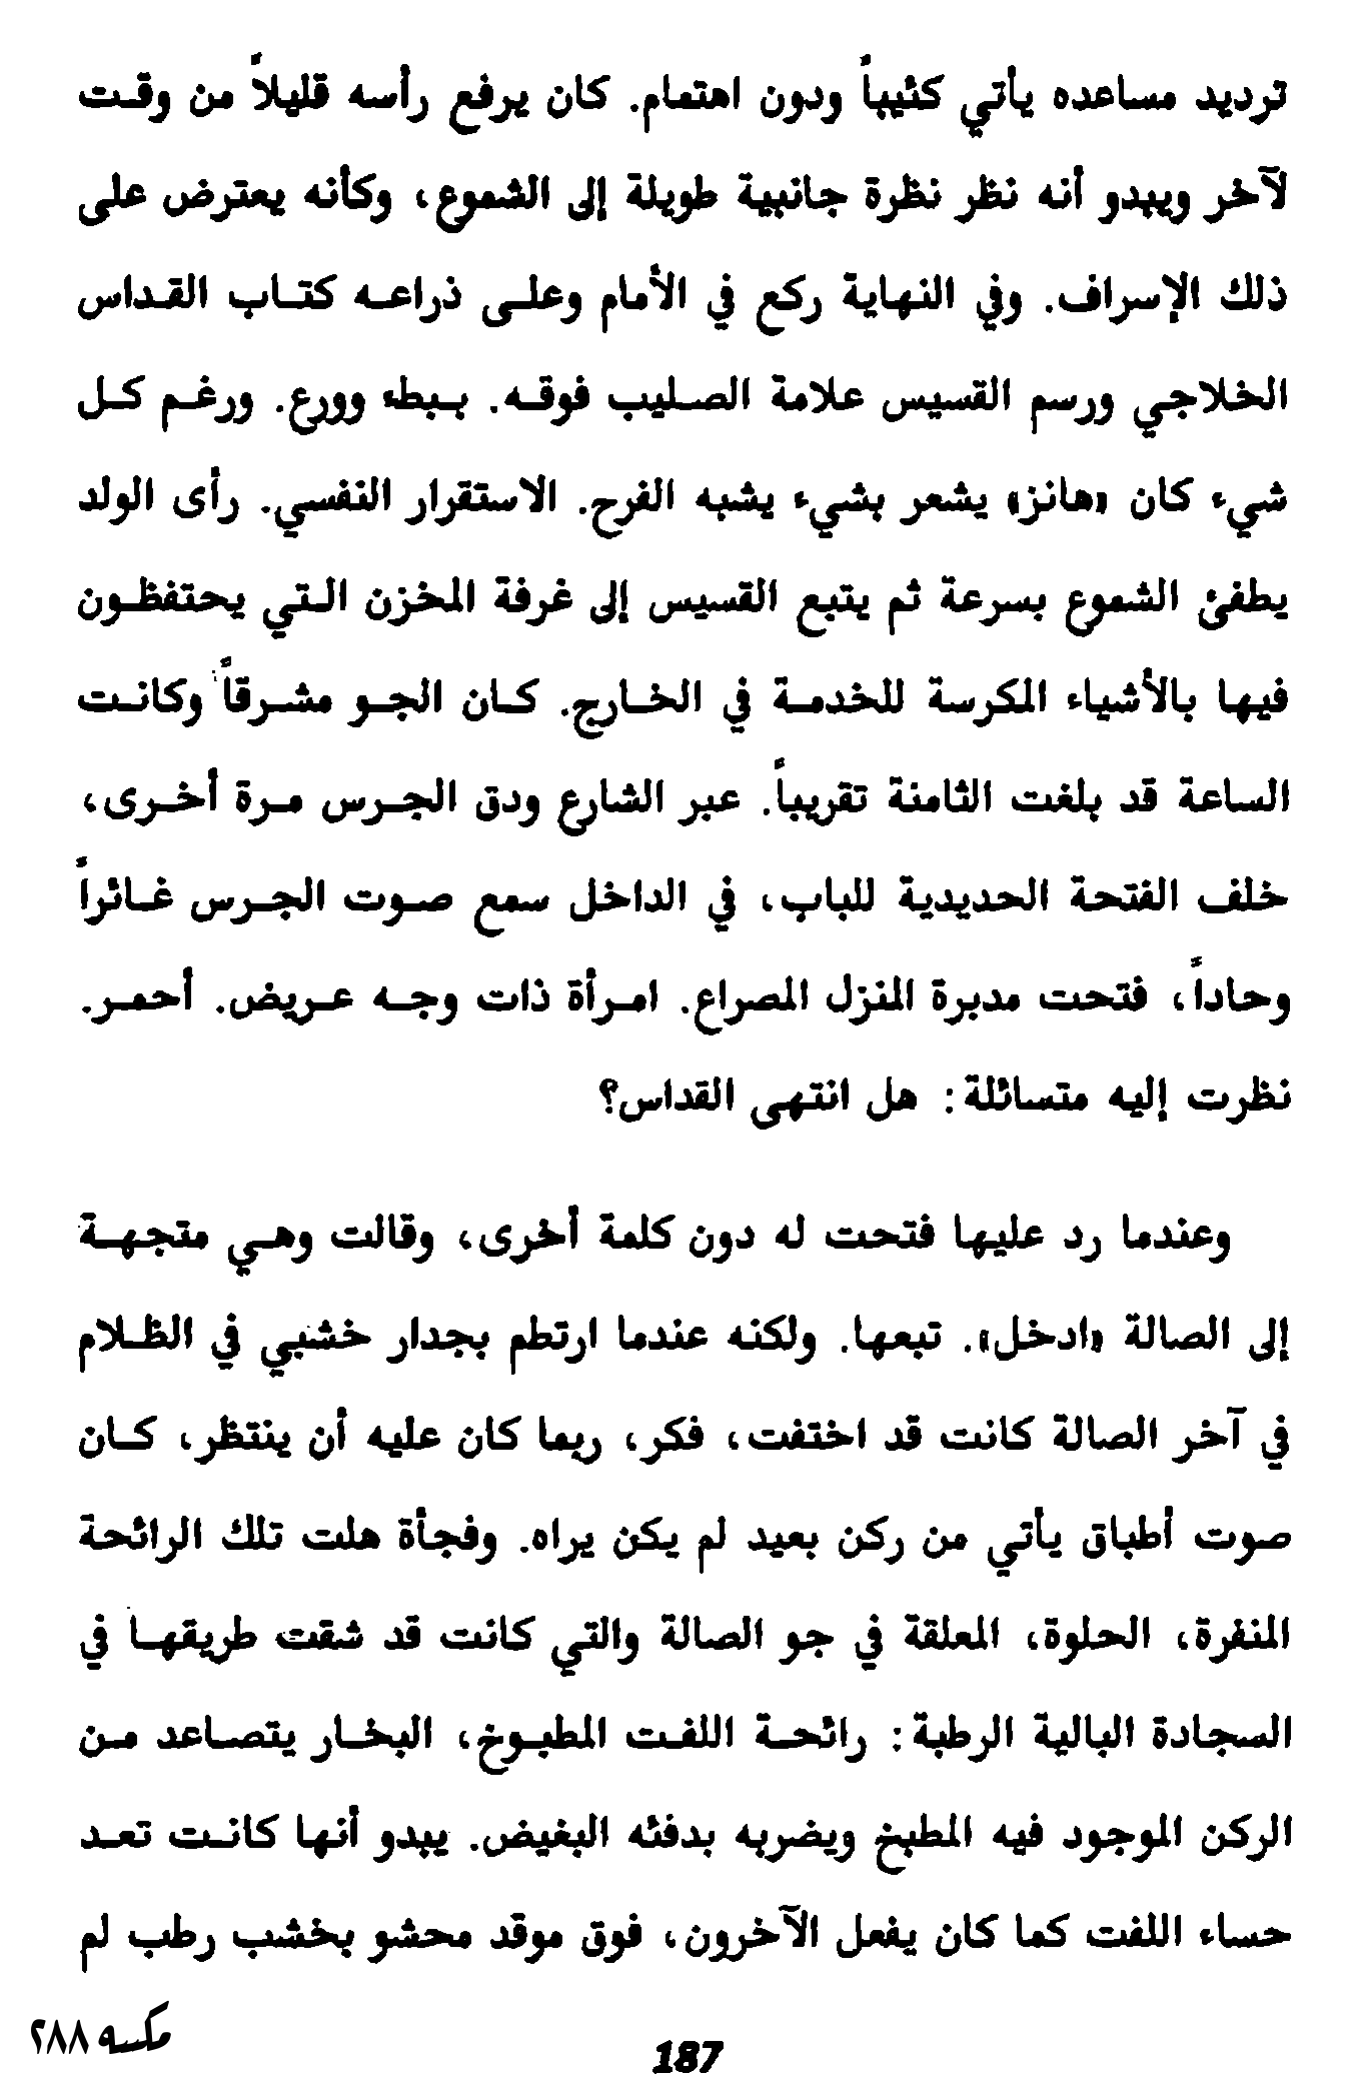 ترديد مساعده يأتي كئيباً ودون اهتمام. كان يرفع رأسه قليلاً من وقت
لآخر ويبدو أنه نظر نظرة جانبية طويلة إلى الشموع، وكأنه يعترض على
ذلك الإسراف. وفي النهاية ركع في الأمام وعلى ذراعه كتاب القداس
الخلاجي ورسم القسيس علامة الصليب فوقه. ببطء وورع. ورغم كل
شيء كان «هانز» يشعر بشيء يشبه الفرح. الاستقرار النفسي. رأى الولد
يطفئ الشموع بسرعة ثم يتبع القسيس إلى غرفة المخزن التي يحتفظون
فيها بالأشياء المكرسة للخدمة في الخارج. كان الجو مشرقاً وكانت
الساعة قد بلغت الثامنة تقريباً. عبر الشارع ودق الجرس مرة أخرى،
خلف الفتحة الحديدية للباب، في الداخل سمع صوت الجرس غائراً
وحاداً، فتحت مدبرة المنزل المصراع. امرأة ذات وجه عريض. أحمر.
نظرت إليه متسائلة: هل انتهى القداس؟
وعندما رد عليها فتحت له دون كلمة أخرى، وقالت وهي متجهة
إلى الصالة «ادخل». تبعها. ولكنه عندما ارتطم بجدار خشبي في الظلام
في آخر الصالة كانت قد اختفت، فكر، ربما كان عليه أن ينتظر، كان
صوت أطباق يأتي من ركن بعيد لم يكن يراه. وفجأة هلت تلك الرائحة
المنفرة، الحلوة، المعلقة في جو الصالة والتي كانت قد شقت طريقها في
السجادة البالية الرطبة: رائحة اللفت المطبوخ، البخار يتصاعد من
الركن الموجود فيه المطبخ ويضربه بدفئه البغيض. يبدو أنها كانت تعد
حساء اللفت كما كان يفعل الآخرون، فوق موقد محشو بخشب رطب لم
187
٢٨٨